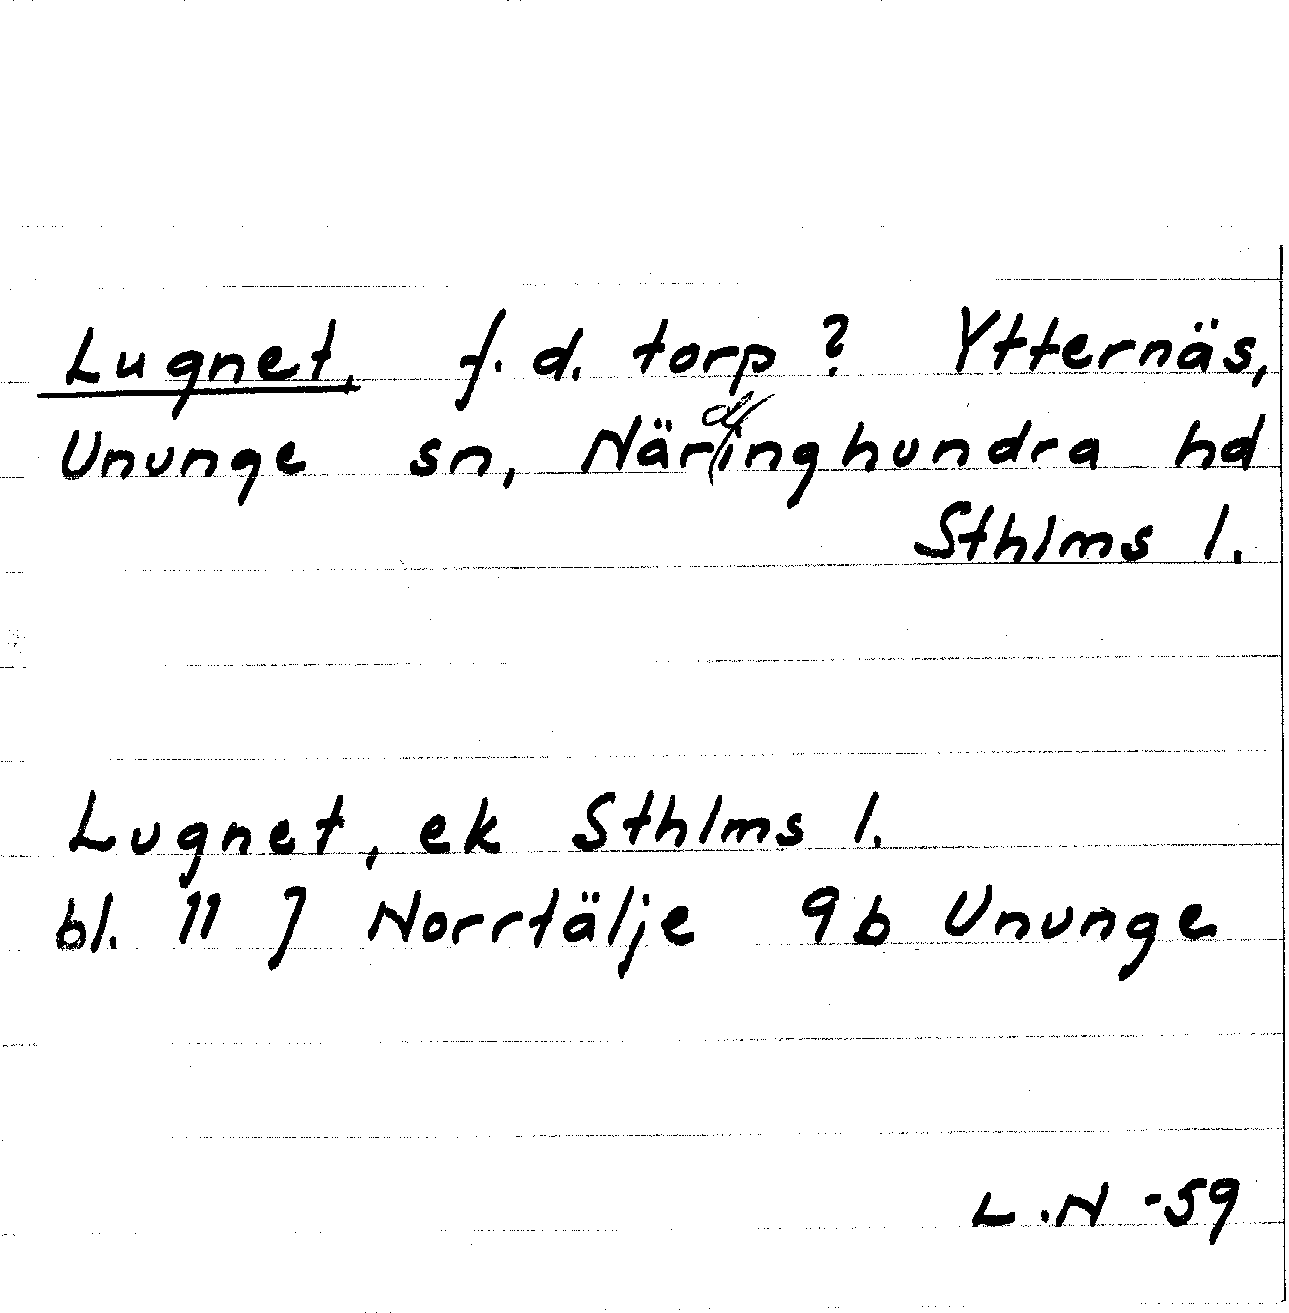 Lugnet, f.d. torp? Ytternäs,
Ununge sn, Närdinghundra hd
Sthlms l.
Lugnet, ek Sthlms l.
bl. 11 J Norrtälje 9b Ununge
L.N -59